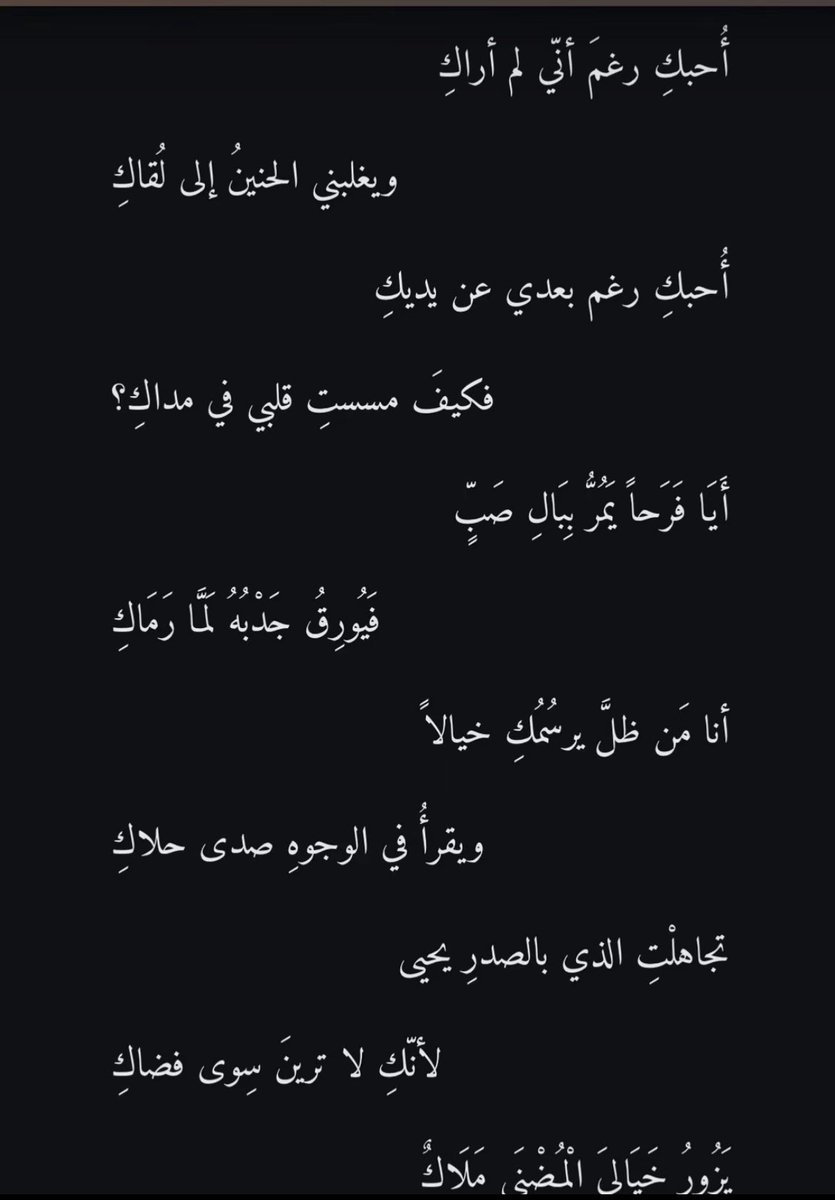 أُحبكِ رغمَ أنّي لم أراكِ
ويغلبني الحنينُ إلى لُقاكِ
أُحبكِ رغم بعدي عن يديكِ
فكيفَ مسستِ قلبي في مداكِ؟
أَيَا فَرَحاً يَمُرُّ بِبَالِ صَبٍّ
فَيُورِقُ جَدْبُهُ لَمَّا رَمَاكِ
أنا مَن ظلَّ يرسُمُكِ خيالاً
ويقرأُ في الوجوهِ صدى حلاكِ
تجاهلْتِ الذي بالصدرِ يحيى
لأنّكِ لا ترينَ سِوى فضاكِ
يَزُورُ خَيَالِيَ الْمُضْنَى مَلَاكٌ